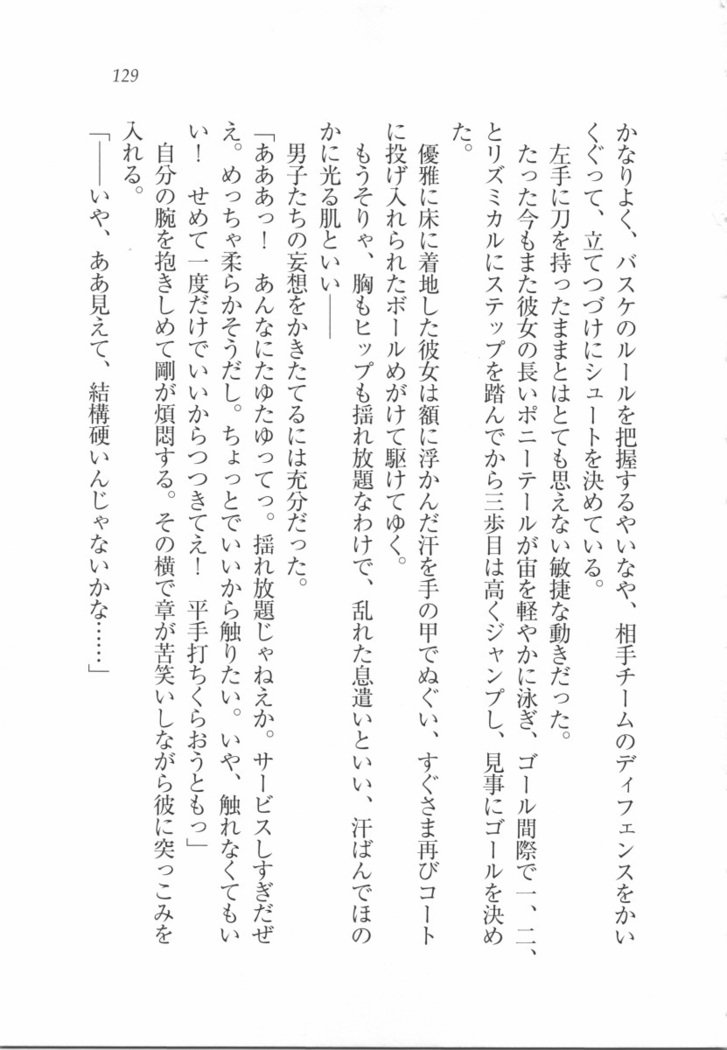 129
かなりよく、バスケのルールを把握するやいなや、相手チームのディフェンスをかい
くぐって、立てつづけにシュートを決めている。
左手に刀を持ったままとはとても思えない敏捷な動きだった。
たった今もまた彼女の長いポニーテールが宙を軽やかに泳ぎ、ゴール間際で一、二、
とリズミカルにステップを踏んでから三歩目は高くジャンプし、見事にゴールを決め
た。
優雅に床に着地した彼女は額に浮かんだ汗を手の甲でぬぐい、すぐさま再びコート
に投げ入れられたボールめがけて駆けてゆく。
もうそりゃ、胸もヒップも揺れ放題なわけで、乱れた息遣いといい、汗ばんでほの
かに光る肌といい――
男子たちの妄想をかきたてるには充分だった。
「あああっ！　あんなにたゆたゆってっ。揺れ放題じゃねえか。サービスしすぎだぜ
え。めっちゃ柔らかそうだし。ちょっとでいいから触りたい。いや、触れなくてもい
い！　せめて一度だけでいいからつつきてえ！　平手打ちくらおうともっ」
自分の腕を抱きしめて剛が煩悶する。その横で章が苦笑いしながら彼に突っこみを
入れる。
「――いや、ああ見えて、結構硬いんじゃないかな……」